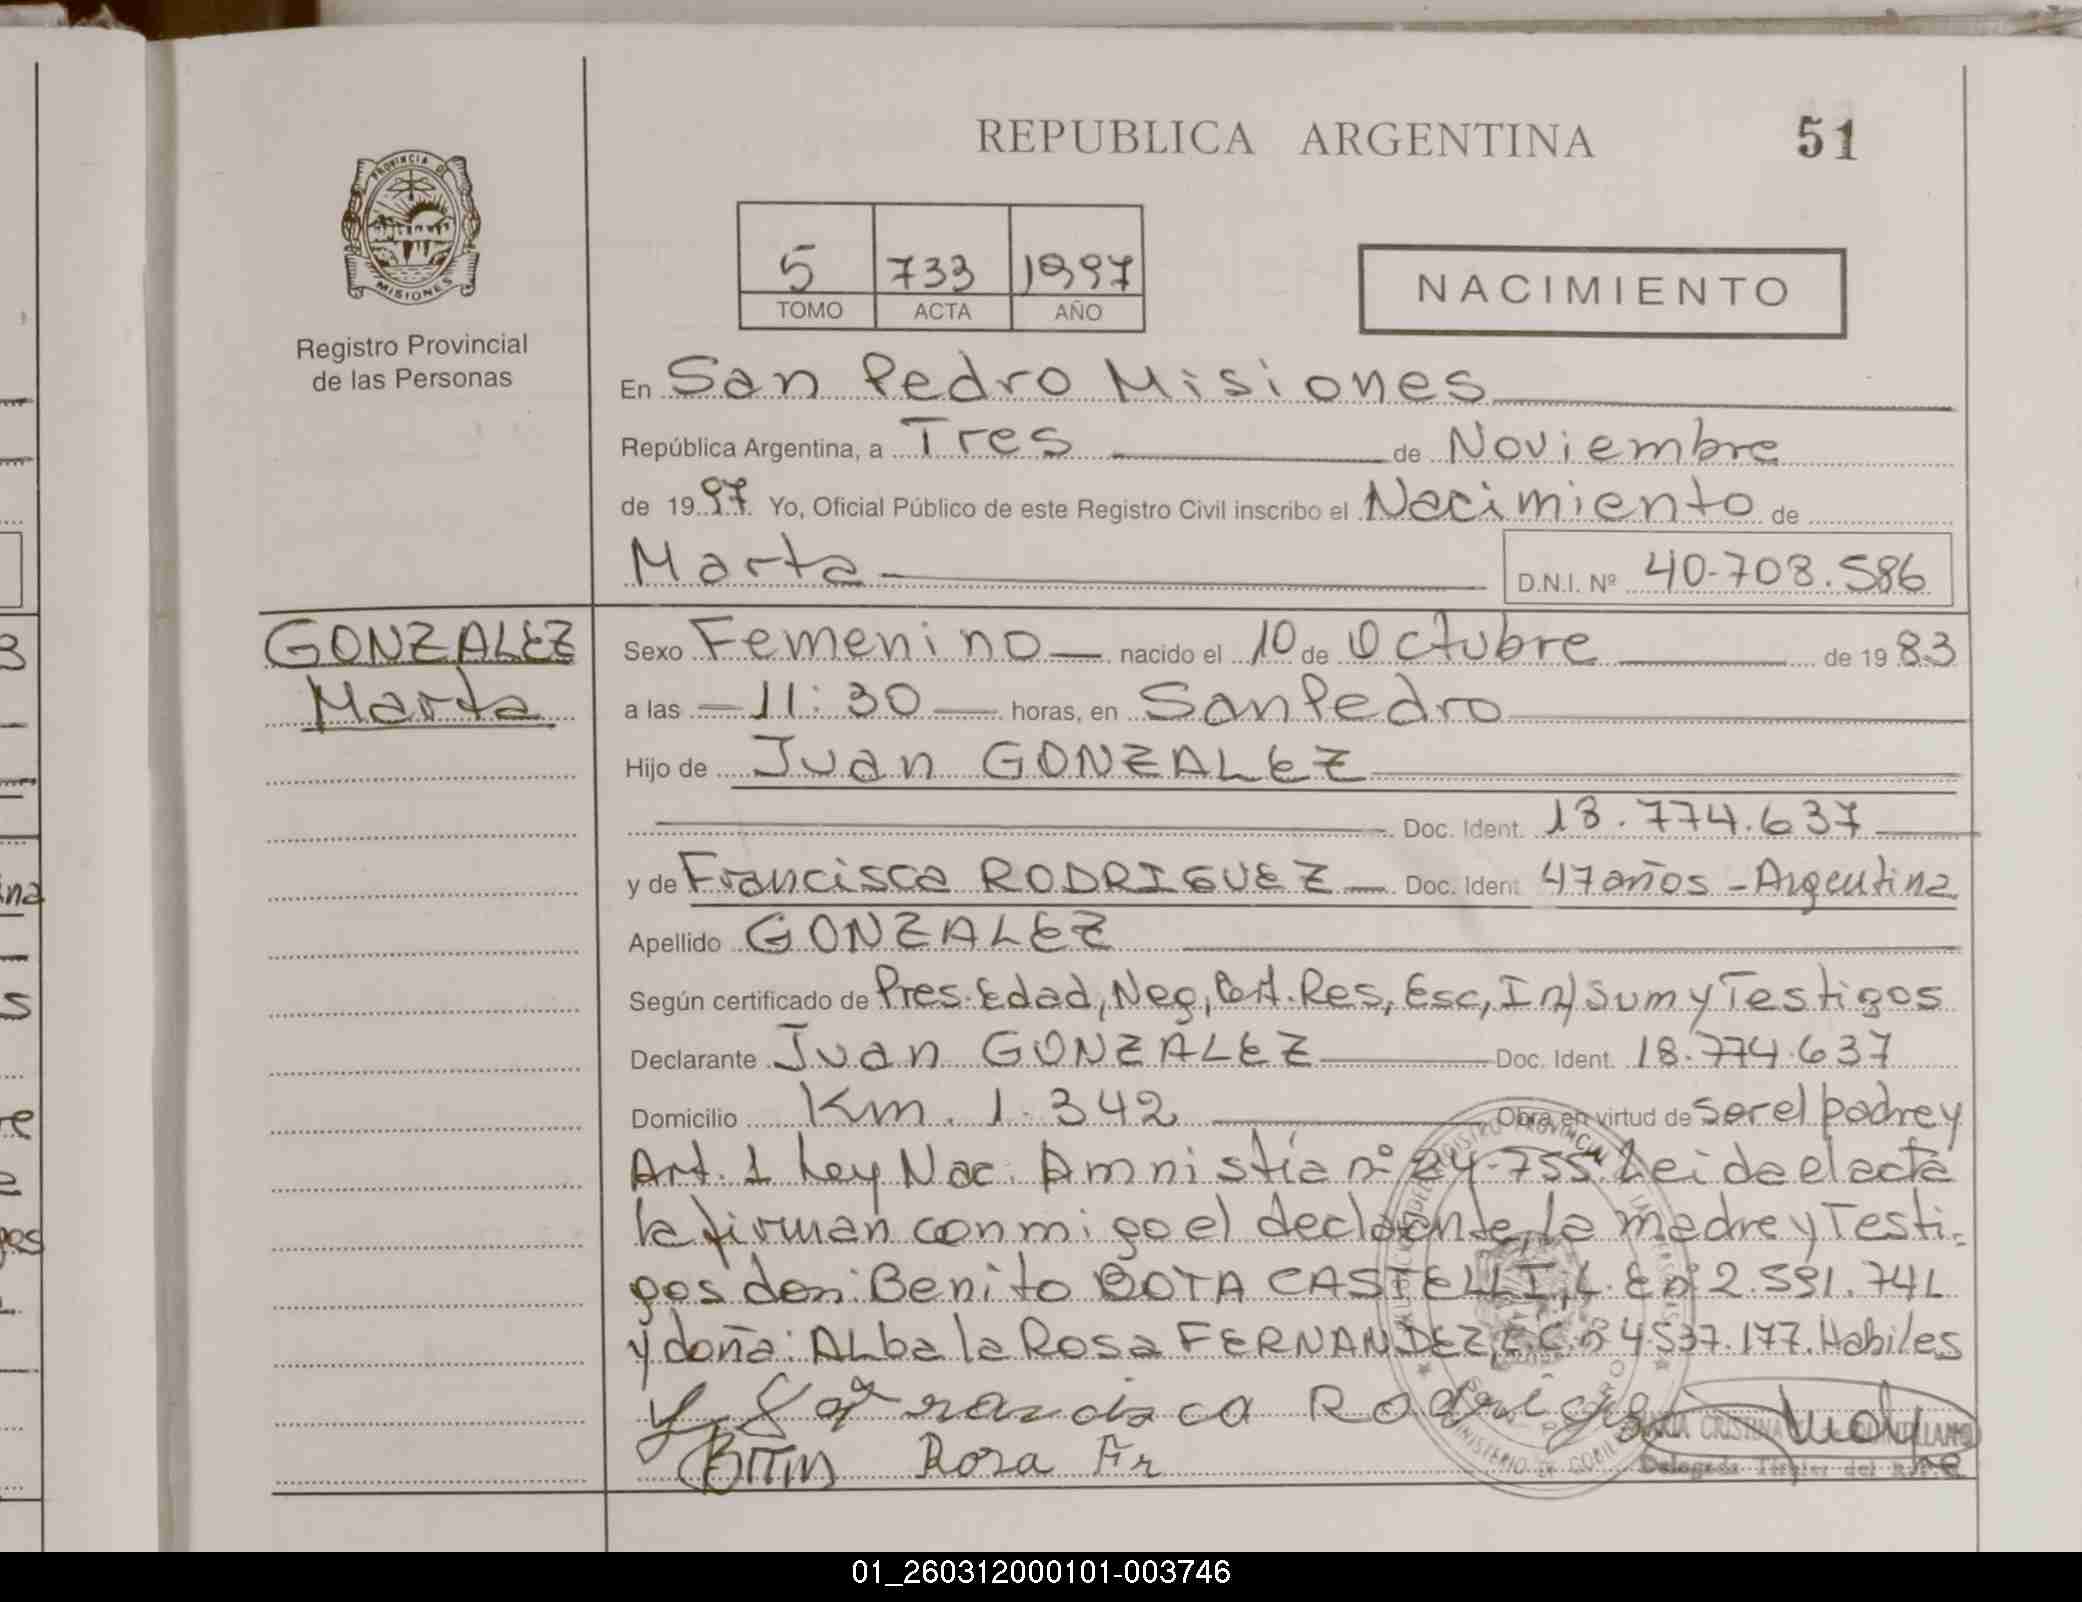 REPUBLICA ARGENTINA
51
PROVINCIA DE MISIONES
Registro Provincial
de las Personas
5 733 1997
TOMO ACTA AÑO
NACIMIENTO
En San Pedro Misiones
República Argentina, a Tres de Noviembre
de 1997 Yo, Oficial Público de este Registro Civil inscribo el Nacimiento de
Marta D.N.I. Nº 40.708.586
GONZALEZ
Marta
Sexo Femenino nacido el 10 de Octubre de 1983
a las 11:30 horas, en San Pedro
Hijo de Juan GONZALEZ
Doc. Ident. 18.774.637
y de Francisca RODRIGUEZ Doc. Ident 47 años - Argentina
Apellido GONZALEZ
Según certificado de Pres. Edad, Neg, Cert. Res, Esc, In/Sum y Testigos
Declarante Juan GONZALEZ Doc. Ident. 18.774.637
Domicilio Km. 1.342 Obra en virtud de ser el padre y
Art. 1 Ley Nac. Amnistía nº 24.755. Leida el acta
la firman conmigo el declarente, la madre y Testi-
gos don: Benito BOTA CASTELLI, L.E nº 2.591.741
y doña: ALba la Rosa FERNANDEZ, L.C. nº 4.537.177. Habiles
Francisca Rodrigue
Rosa Fr
MARIA CRISTINA
Delegada Titular del R.P.P.
01_260312000101-003746